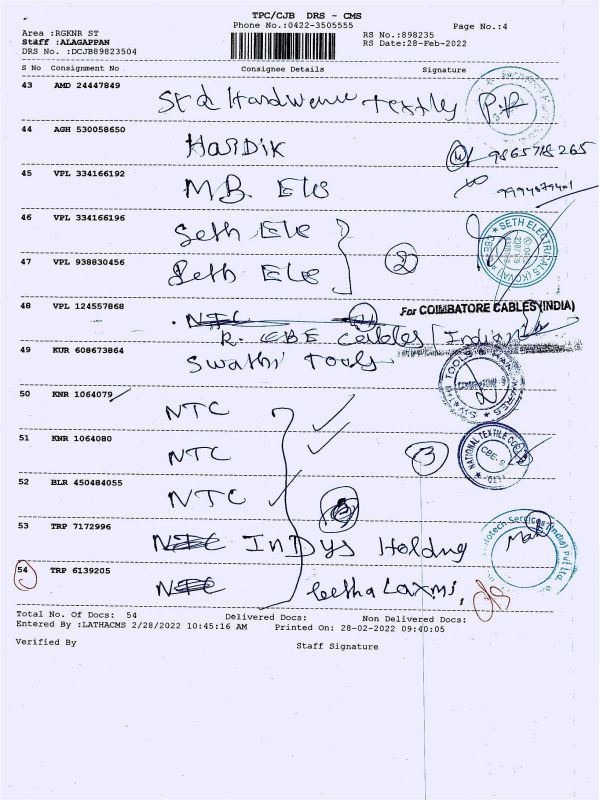 TPC/CJB DRS - CMS
Phone No.:0422-3505555
Page No.:4
Area :RGKNR ST
RS No.:898235
Staff :ALAGAPPAN
RS Date:28-Feb-2022
DRS No. :DCJB89823504
S No Consignment No Consignee Details Signature
43 AMD 24447849
Std Hardware
44 AGH 530058650
Hardik 9865718265
45 VPL 334166192
M.B. Ele
46 VPL 334166196
Seth Ele
SETH ELECTRICALS (KOVAI)
47 VPL 938830456
Seth Ele 2
48 VPL 124557868
NTC
For COIMBATORE CABLES (INDIA)
R. CBE Cables (India)
49 KUR 608673864
Swathi Tools
50 KNR 1064079
NTC
51 KNR 1064080
NTC 3
NATIONAL TEXTILE CBE-9
52 BLR 450484055
NTC
53 TRP 7172996
NTC InDys Holding
54 TRP 6139205
NTC Geetha Laxmi,
Total No. Of Docs: 54 Delivered Docs: Non Delivered Docs:
Entered By :LATHACMS 2/28/2022 10:45:16 AM Printed On: 28-02-2022 09:40:05
Verified By Staff Signature